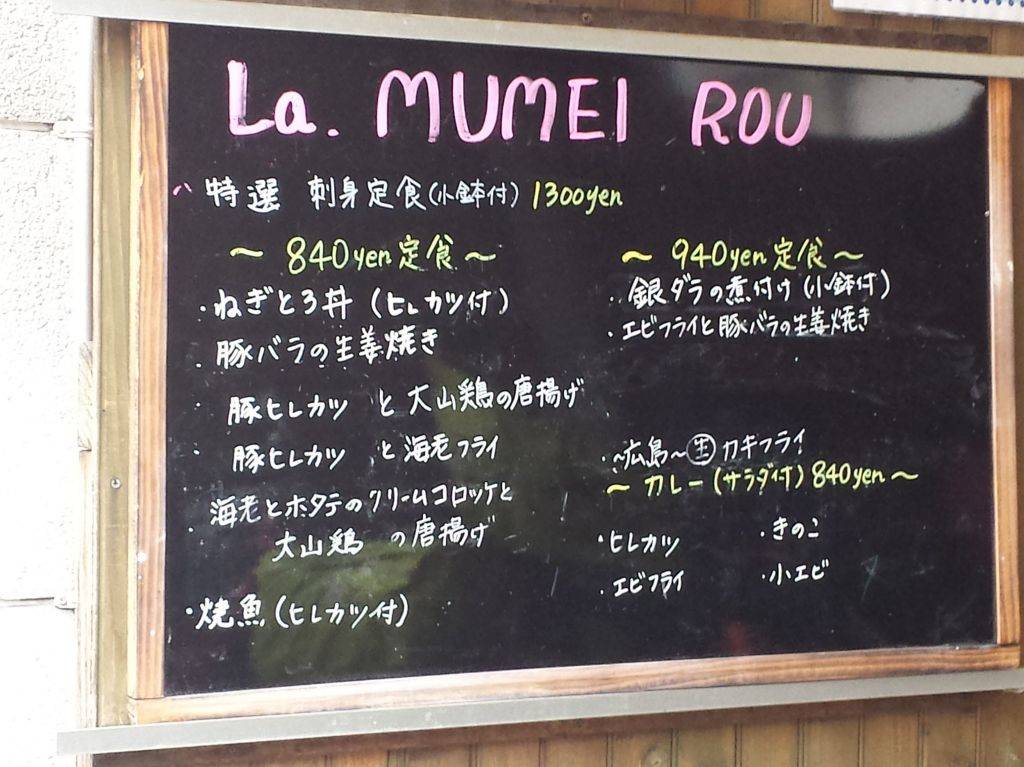 La. MUMEI ROU
特選 刺身定食(小鉢付) 1300yen
〜 840yen定食 〜
・ねぎとろ丼 (ヒレカツ付)
・豚バラの生姜焼き
・豚ヒレカツ と大山鶏の唐揚げ
・豚ヒレカツ と海老フライ
・海老とホタテのクリームコロッケと
大山鶏 の唐揚げ
・焼魚(ヒレカツ付)
〜 940yen定食 〜
・銀ダラの煮付け(小鉢付)
・エビフライと豚バラの生姜焼き
・〜広島〜 生 カキフライ
〜 カレー(サラダ付) 840yen 〜
・ヒレカツ ・きのこ
・エビフライ ・小エビ